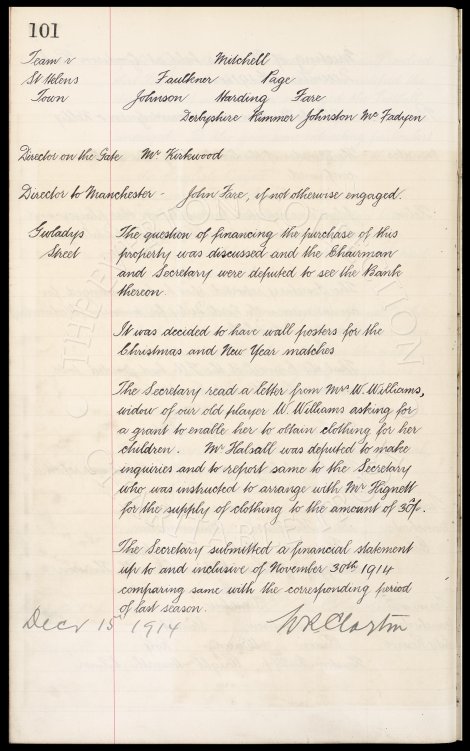 101
Team v Mitchell
St Helens Faulkner Page
Town Johnson Harding Fare
Derbyshire Rimmer Johnston McFadyen
Director on the Gate Mr Kirkwood
Director to Manchester - John Fare, if not otherwise engaged.
Gwladys The question of financing the purchase of this
Street property was discussed and the Chairman
and Secretary were deputed to see the Bank
thereon
It was decided to have wall posters for the
Christmas and New Year matches
The Secretary read a letter from Mrs W. Williams,
widow of our old player W. Williams asking for
a grant to enable her to obtain clothing for her
children. Mr Halsall was deputed to make
inquiries and to report same to the Secretary
who was instructed to arrange with Mr Hignett
for the supply of clothing to the amount of 30/-.
The Secretary submitted a financial statement
up to and inclusive of November 30th 1914
comparing same with the corresponding period
of last season.
Decr 15th 1914 W R Clayton